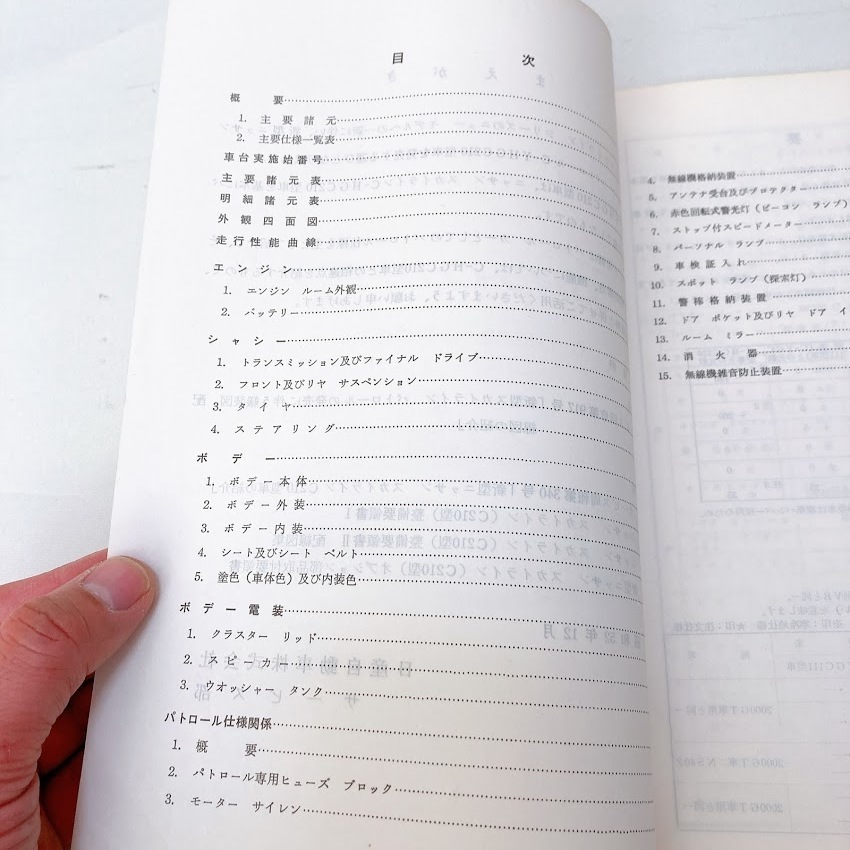 目 次
概 要
1. 主 要 諸 元
2. 主要仕様一覧表
車台実施始番号
主 要 諸 元 表
明 細 諸 元 表
外 観 四 面 図
走行性能曲線
エ ン ジ ン
1. エンジン ルーム外観
2. バッテリー
シ ャ シ ー
1. トランスミッション及びファイナル ドライブ
2. フロント及びリヤ サスペンション
3. タ イ ヤ
4. ス テ ア リ ン グ
ボ デ ー
1. ボ デ ー 本 体
2. ボ デ ー 外 装
3. ボ デ ー 内 装
4. シート及びシート ベルト
5. 塗色（車体色）及び内装色
ボ デ ー 電 装
1. クラスター リッド
2. ス ピ ー カ ー
3. ウオッシャー タンク
パトロール仕様関係
1. 概 要
2. パトロール専用ヒューズ ブロック
3. モーター サイレン
4. 無線機格納装置
5. アンテナ受台及びプロテクター
6. 赤色回転式警光灯（ビーコン ランプ）
7. ストップ付スピードメーター
8. パーソナル ランプ
9. 車 検 証 入 れ
10. スポット ランプ（探索灯）
11. 警 棒 格 納 装 置
12. ドア ポケット及びリヤ ドア イ
13. ルーム ミラー
14. 消 火 器
15. 無線機雑音防止装置